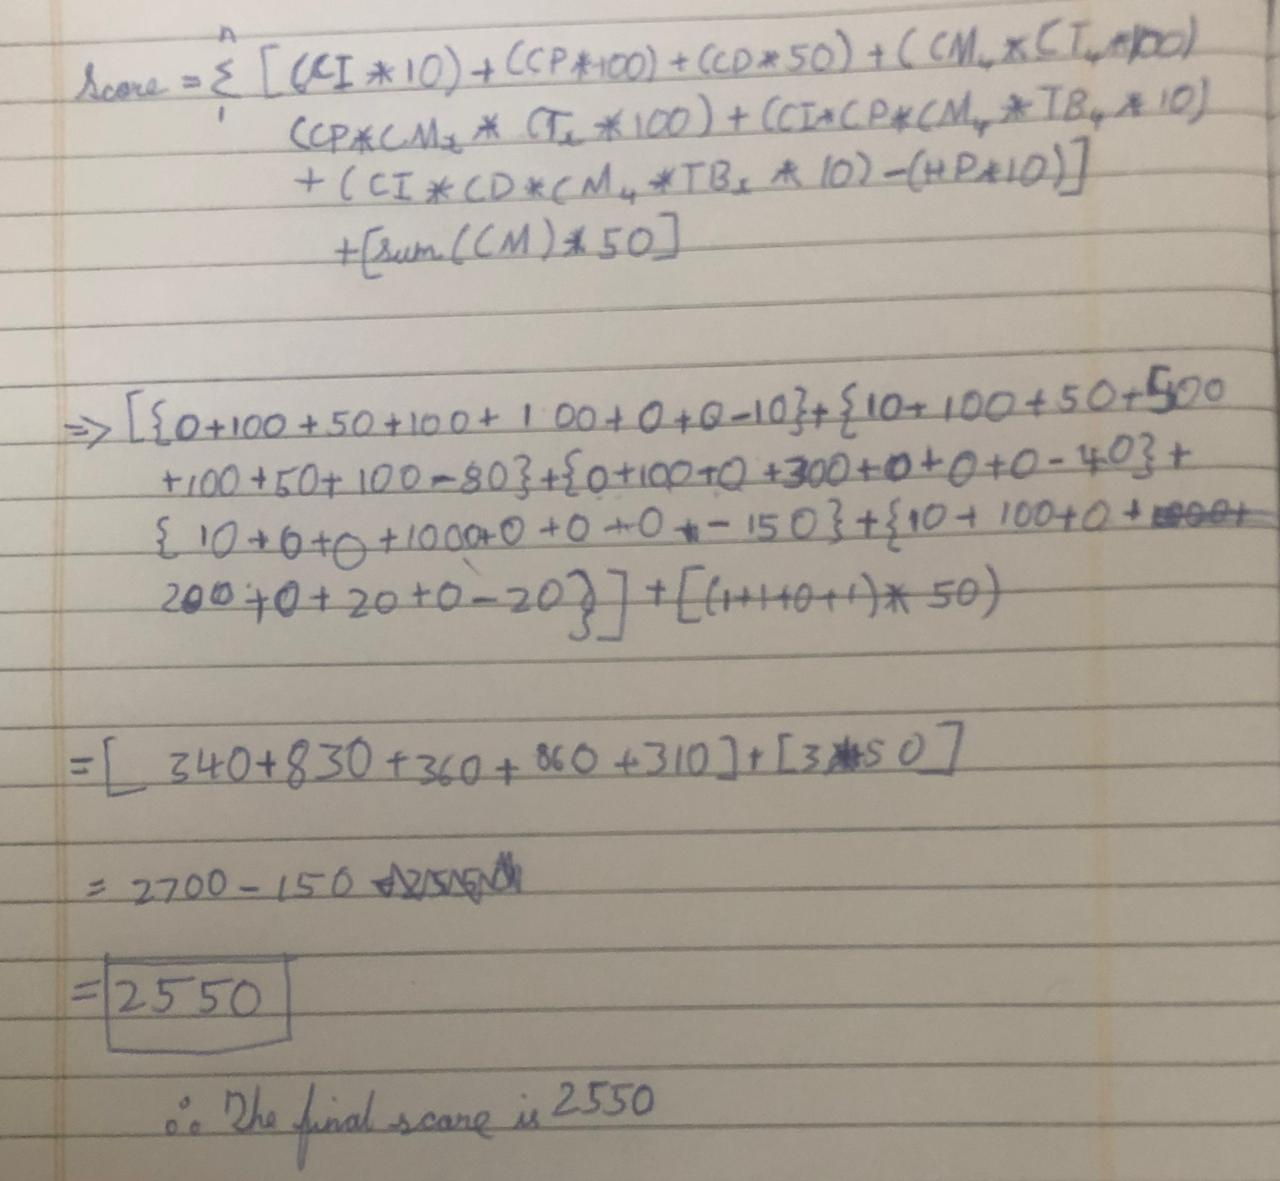 n
Score = Σ [(CI * 10) + (CP * 100) + (CD * 50) + (CM₄ * CT₄ * 100)
1
(CP * CM₂ * CT₂ * 100) + (CI * CP * CM₄ * TB₄ * 10)
+ (CI * CD * CM₄ * TB₂ * 10) - (HP * 10)]
+ [sum (CM) * 50]
=> [{0+100+50+100+100+0+0-10}+{10+100+50+500
+100+50+100-80}+{0+100+0+300+0+0+0-40}+
{10+0+0+1000+0+0+0-150}+{10+100+0+
200+0+20+0-20}]+[(1+1+0+1)*50)
= [340+830+360+860+310]+[3*50]
= 2700-150
= 2550
∴ The final score is 2550